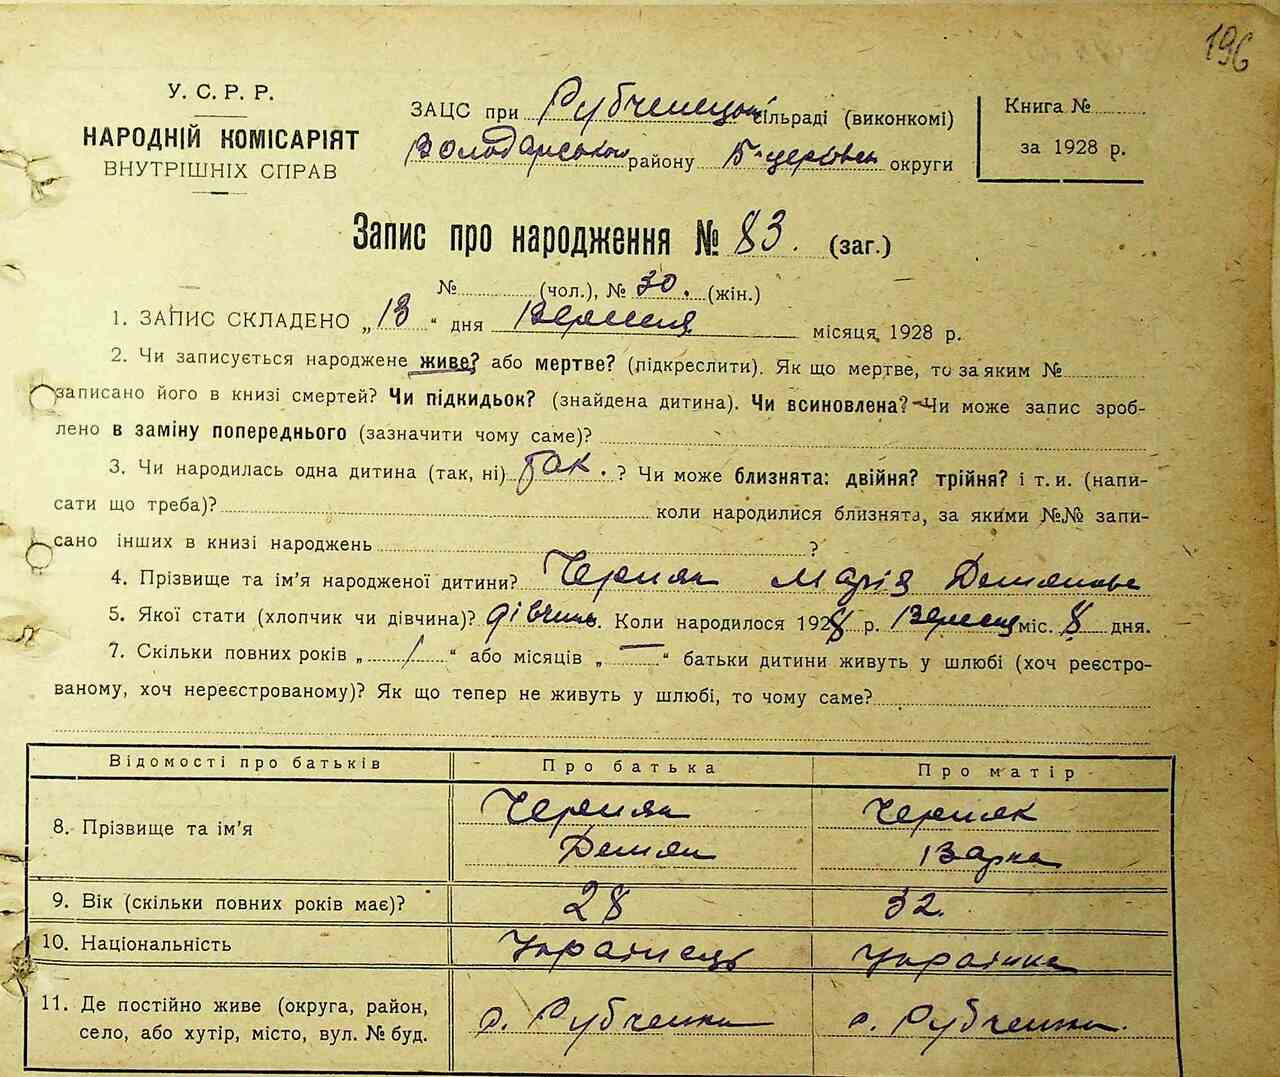 196
У. С. Р. Р.
НАРОДНІЙ КОМІСАРІЯТ
ВНУТРІШНІХ СПРАВ
ЗАЦС при Рубченецькій сільраді (виконкомі)
Володарського району Б-церківськ округи
Книга №
за 1928 р.
Запис про народження № 83. (заг.)
№ (чол.), № 30. (жін.)
1. ЗАПИС СКЛАДЕНО „13“ дня Вересня місяця, 1928 р.
2. Чи записується народжене живе? або мертве? (підкреслити). Як що мертве, то за яким №
записано його в книзі смертей? Чи підкидьок? (знайдена дитина). Чи всиновлена? Чи може запис зроб-
лено в заміну попереднього (зазначити чому саме)?
3. Чи народилась одна дитина (так, ні) так. ? Чи може близнята: двійня? трійня? і т. и. (напи-
сати що треба)? коли народилися близнята, за якими №№ запи-
сано інших в книзі народжень ?
4. Прізвище та ім’я народженої дитини? Черняк Марія Демянова
5. Якої стати (хлопчик чи дівчина)? дівчина. Коли народилося 1928 р. Вересня міс. 8 дня.
7. Скільки повних років „ 1 “ або місяців „ — “ батьки дитини живуть у шлюбі (хоч реєстро-
ваному, хоч нереєстрованому)? Як що тепер не живуть у шлюбі, то чому саме?
Відомості про батьків Про батька Про матір
8. Прізвище та ім’я Черняк Черняк
Демян Варка
9. Вік (скільки повних років має)? 28 32.
10. Національність Українець Українка
11. Де постійно живе (округа, район,
село, або хутір, місто, вул. № буд. с. Рубченки с. Рубченки.